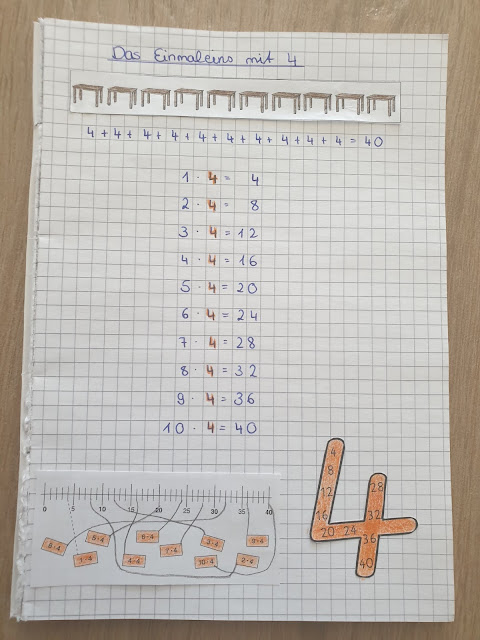 Das Einmaleins mit 4
4 + 4 + 4 + 4 + 4 + 4 + 4 + 4 + 4 + 4 = 40
1 · 4 = 4
2 · 4 = 8
3 · 4 = 12
4 · 4 = 16
5 · 4 = 20
6 · 4 = 24
7 · 4 = 28
8 · 4 = 32
9 · 4 = 36
10 · 4 = 40
0 5 10 15 20 25 30 35 40
5·4 3·4
1·4 4·4 7·4 10·4 2·4
4
8
12
16
20 24
28
32
36
40